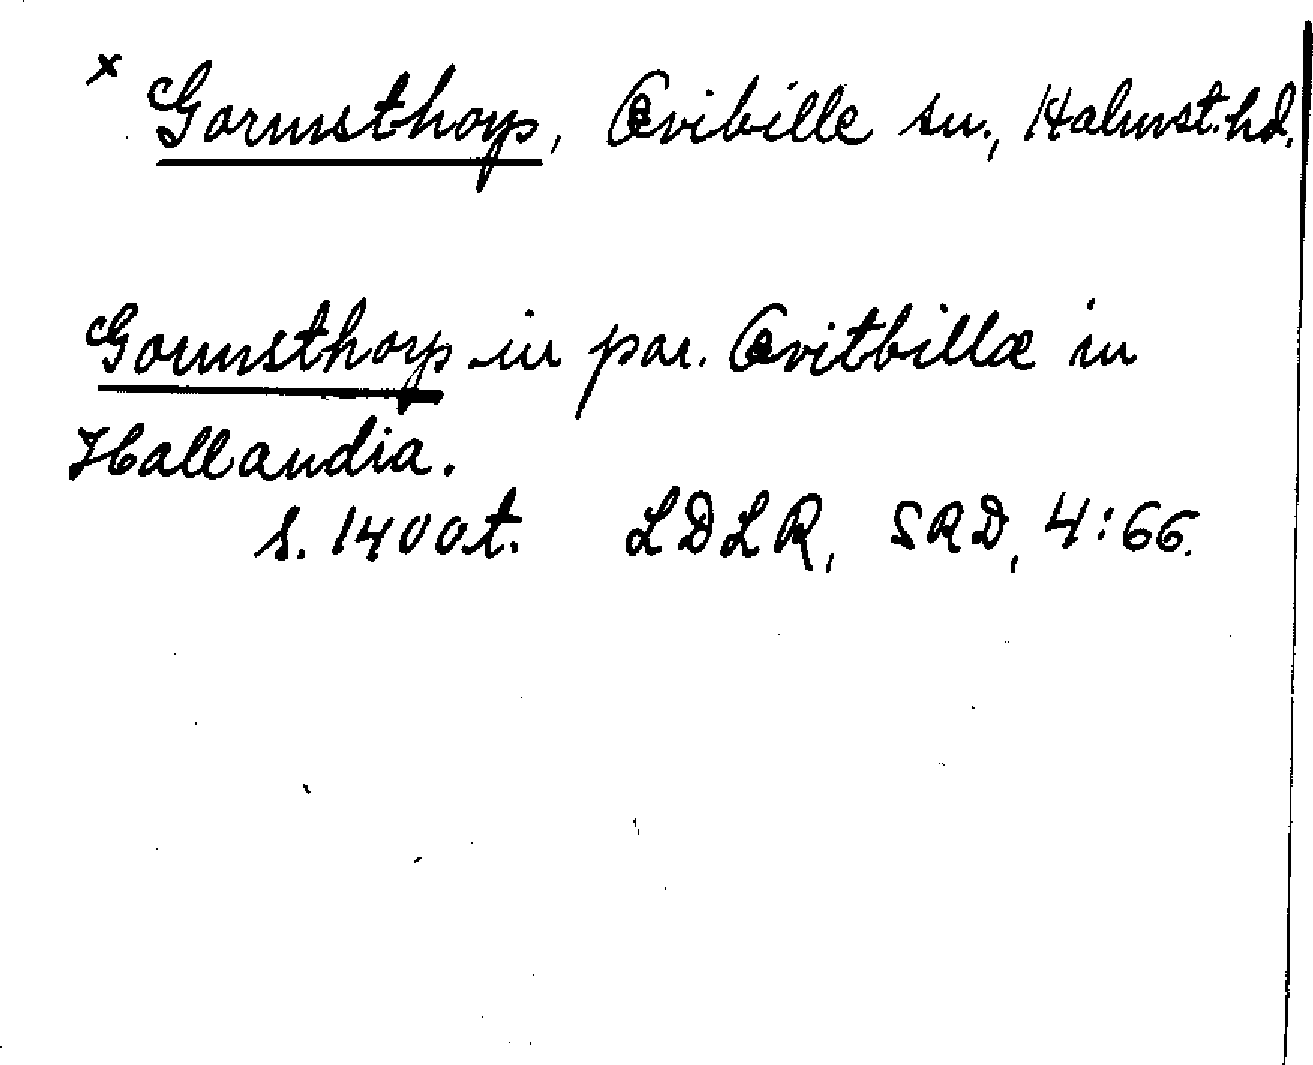 × Gormsthorp, Qvibille sn., Halmst. hd.
Gormsthorp in par. Qvitbillæ in
Hallandia.
s. 1400t. LDLR, SRD, 4:66.